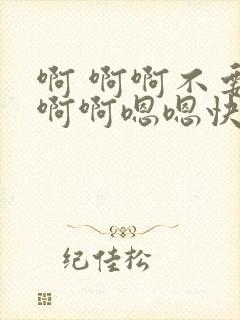 啊 啊啊不要
啊啊嗯嗯快
纪佳松